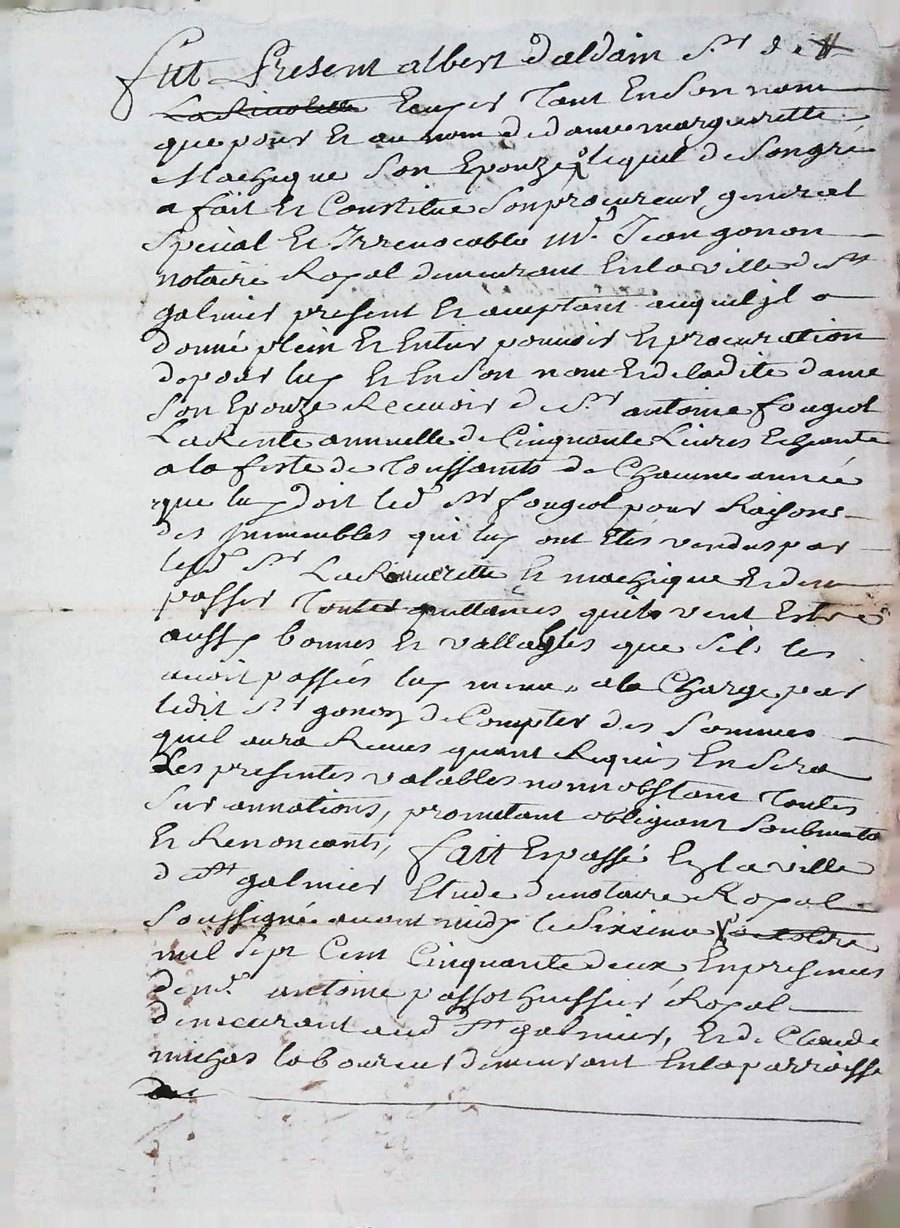 Fut Present albert Daldain Sr de #
Ecuyer Tant En Son nom
que pour Et au nom de dame margueritte
Mathique Son Epouze, lequel de Son gré
a fait Et Constitué Son procureur general
Special Et Irrevocable Mr. Jean gonon
notaire Royal demeurant En la ville de St
galmier present Et acceptant auquel jl a
donné plein Et Entier pouvoir Et procuration
de pour luy Et En Son nom Et de ladite dame
Son Epouze Recevoir de Sr antoine fougiol
La Rente annuelle de Cinquante Livres Echeante
a la feste de Toussaints de Chacune année
que luy doit led Sr fougiol pour Raisons
des jmmeubles qui luy ont Etés vendus par
led Sr Et mathique Et d'en
passer Toutes quittances qu'ils vent Estre
aussy bonnes Et vallables que S'il les
avoit passées luy meme, a la Charge par
ledit Sr gonon de Compter des Sommes
quil aura Reçues quant Requis En Sera
Les presentes valables nonnobstant Toutes
Sur annations, promettant obligeant Soubmetta
Et Renonçants, fait Et passé En la ville
de St galmier Etude du notaire Royal
Soussigné avant midy le Sixieme octobre
mil Sept Cent Cinquante deux, En presences
de Mr. antoine passot huissier Royal
demeurant aud St galmier, Et de Claude
michas laboureur demeurant En la parroisse